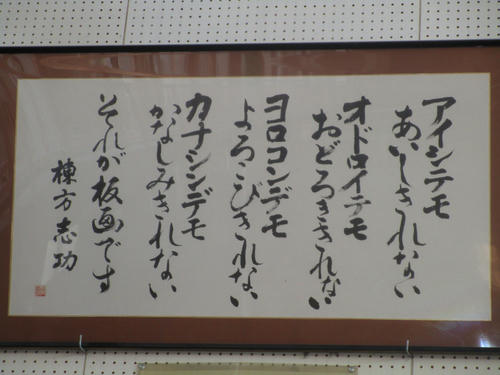 アイシテモ
あいしきれない
オドロイテモ
おどろききれない
ヨロコンデモ
よろこびきれない
カナシンデモ
かなしみきれない
それが板画です
棟方志功